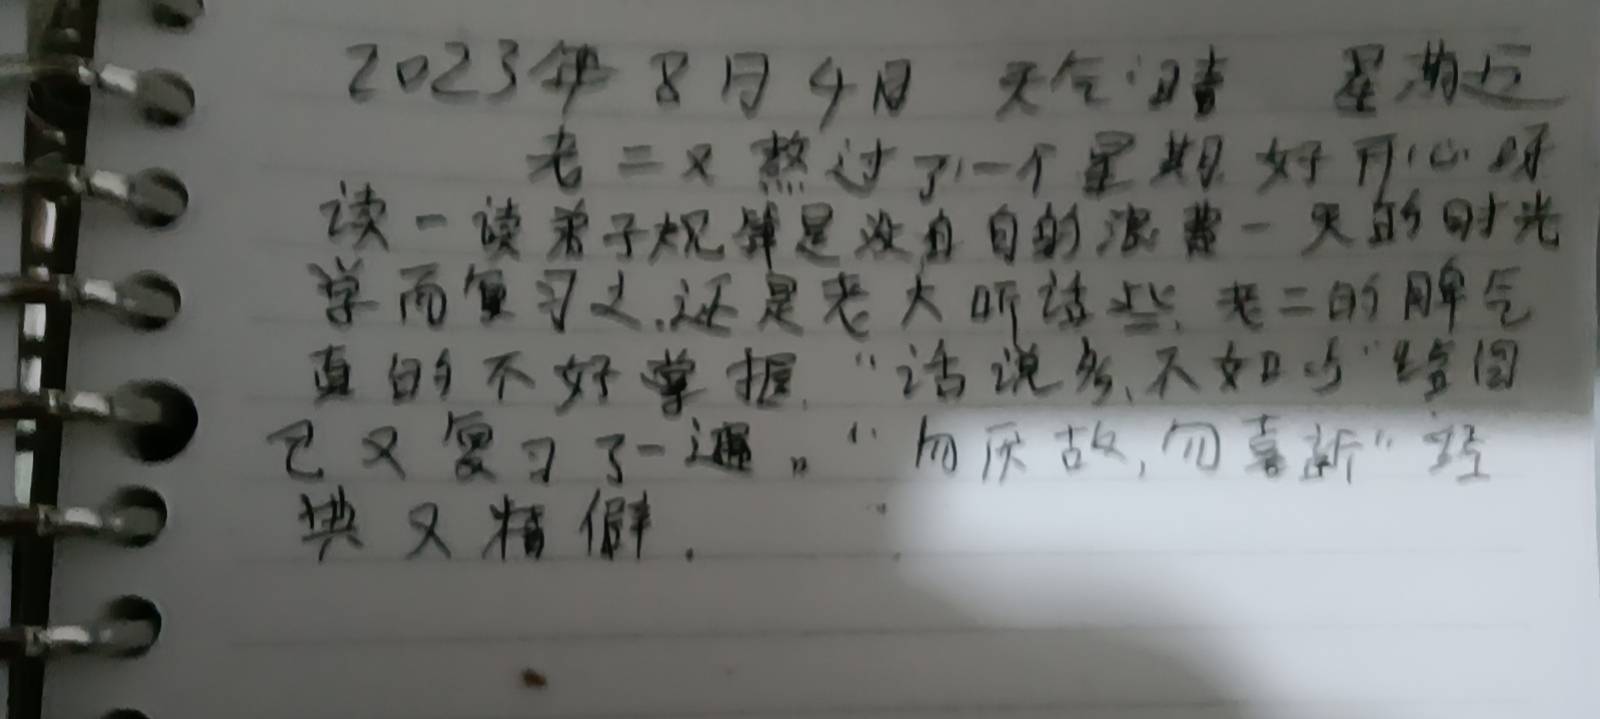 2023年8月4日 天气:晴 星期五
老二又熬过了一个星期.好开心呀
读一读弟子规算是没白白的浪费一天的时光
学而复习之.还是老大听话些.老二的脾气
真的不好掌握.“话说多、不如少”给自
己又复习了一遍。“勿厌故,勿喜新”经
典又精僻.